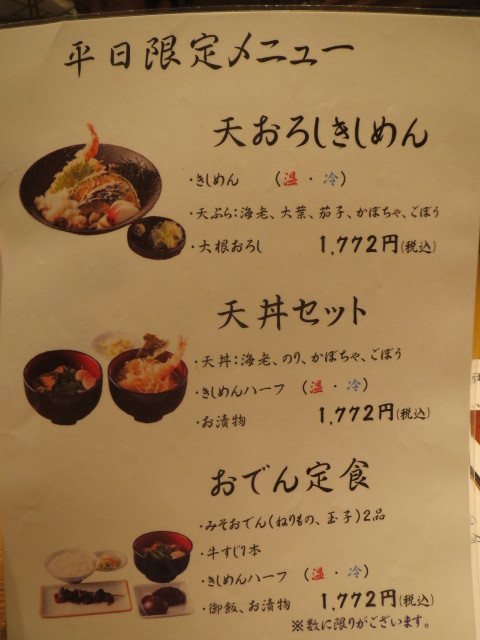 平日限定メニュー
天おろしきしめん
・きしめん （温・冷）
・天ぷら：海老、大葉、茄子、かぼちゃ、ごぼう
・大根おろし 1,772円(税込)
天丼セット
・天丼：海老、のり、かぼちゃ、ごぼう
・きしめんハーフ （温・冷）
・お漬物 1,772円(税込)
おでん定食
・みそおでん(ねりもの、玉子)2品
・牛すじ1本
・きしめんハーフ （温・冷）
・御飯、お漬物 1,772円(税込)
※数に限りがございます。